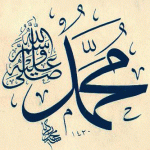 محمد
صلى الله عليه وسلم
١٤٣٠